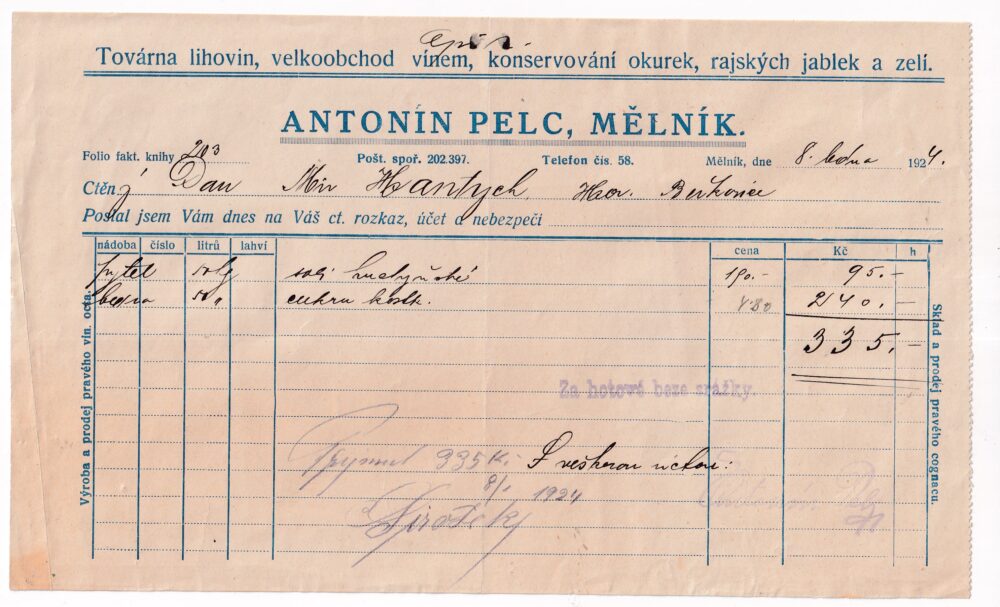 Opis.
Továrna lihovin, velkoobchod vínem, konservování okurek, rajských jablek a zelí.
ANTONÍN PELC, MĚLNÍK.
Folio fakt. knihy 203 Pošt. spoř. 202.397. Telefon čís. 58. Mělník, dne 8. ledna 1924.
Ctěný Pan Mir Hantych, Hor. Beřkovice
Poslal jsem Vám dnes na Váš ct. rozkaz, účet a nebezpečí
nádoba číslo litrů lahví cena Kč h
pytel 50 kg soli 190.- 95.-
bedna 50 " cukru kostk. 4.80 240.-
335.-
Za hotové beze srážky.
335 Kč S veškerou úctou:
8/1 1924
Výroba a prodej pravého vín. octa.
Sklad a prodej pravého cognacu.